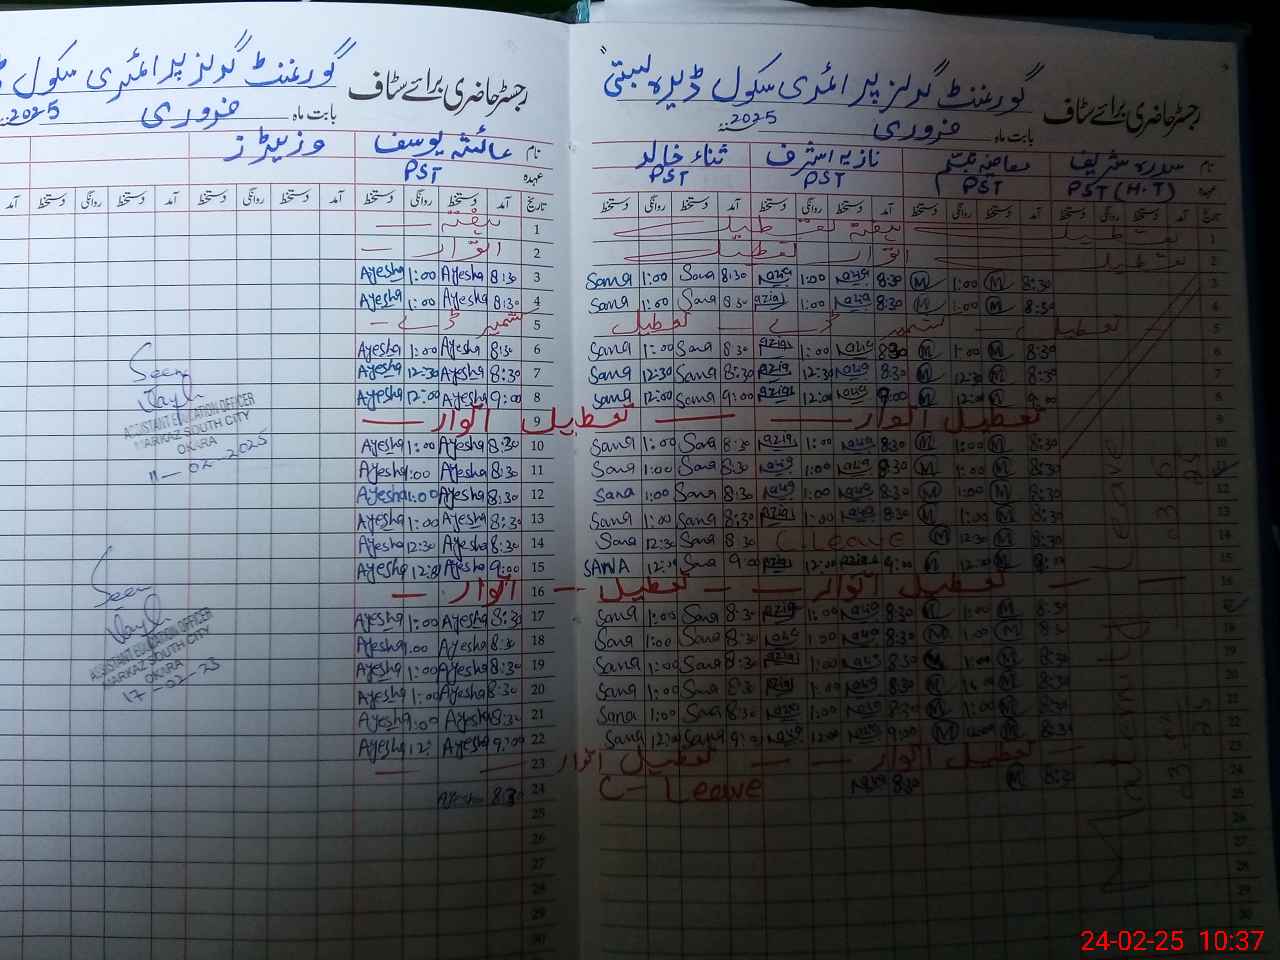 گورنمنٹ گرلز پرائمری سکول ڈیرہ لبتی
رجسٹر حاضری برائے سٹاف
بابت ماہ فروری 2025
نام سدرہ شریف نازیہ اشرف ثناء خالد
عہدہ PST (H.T) PST PST PST
تاریخ آمد دستخط روانگی دستخط آمد دستخط روانگی دستخط آمد دستخط روانگی دستخط آمد دستخط روانگی دستخط
1 ہفتہ تعطیل
2 اتوار تعطیل
3 8:30 M 1:00 M 8:30 Nazia 1:00 Nazia 8:30 Sana 1:00 Sana
4 8:30 M 1:00 M 8:30 Nazia 1:00 Nazia 8:30 Sana 1:00 Sana
5 تعطیل کشمیر ڈے تعطیل
6 8:30 M 1:00 M 8:30 Nazia 1:00 Nazia 8:30 Sana 1:00 Sana
7 8:30 M 12:30 M 8:30 Nazia 12:30 Nazia 8:30 Sana 12:30 Sana
8 9:00 M 12:00 M 9:00 Nazia 12:00 Nazia 9:00 Sana 12:00 Sana
تعطیل اتوار تعطیل
10 8:30 M 1:00 M 8:30 Nazia 1:00 Nazia 8:30 Sana 1:00 Sana
8:30 M 1:00 M 8:30 Nazia 1:00 Nazia 8:30 Sana 1:00 Sana
12 8:30 M 1:00 M 8:30 Nazia 1:00 Nazia 8:30 Sana 1:00 Sana
13 8:30 M 1:00 M 8:30 Nazia 1:00 Nazia 8:30 Sana 1:00 Sana
14 8:30 M 12:30 M C.Leave 8:30 Sana 12:30 Sana
15 9:00 M 12:00 M 9:00 Nazia 12:00 Nazia 9:00 Sana 12:00 SANA
16 تعطیل اتوار تعطیل
8:30 M 1:00 M 8:30 Nazia 1:00 Nazia 8:30 Sana 1:00 Sana
8:30 M 1:00 M 8:30 Nazia 1:00 Nazia 8:30 Sana 1:00 Sana
8:30 M 1:00 M 8:30 Nazia 1:00 Nazia 8:30 Sana 1:00 Sana
8:30 M 8:30 Nazia 1:00 Nazia 8:30 Sana 1:00 Sana
8:30 M 1:00 M 8:30 Nazia 1:00 Nazia 8:30 Sana 1:00 Sana
8:30 M M 9:00 Nazia 12:00 Nazia 9:00 Sana 12:00 Sana
تعطیل اتوار تعطیل اتوار
8:30 M 8:30 Nazia C-Leave
Maternity Leave
گورنمنٹ گرلز پرائمری سکول
رجسٹر حاضری برائے سٹاف
بابت ماہ فروری 2025
نام عائشہ یوسف وزیٹرز
عہدہ PST
تاریخ آمد دستخط روانگی دستخط آمد دستخط روانگی دستخط آمد دستخط روانگی دستخط آمد
1 ہفتہ
2 اتوار
3 8:30 Ayesha 1:00 Ayesha
4 8:30 Ayesha 1:00 Ayesha
5 کشمیر ڈے
6 8:30 Ayesha 1:00 Ayesha
7 8:30 Ayesha 12:30 Ayesha
8 9:00 Ayesha 12:00 Ayesha
9 اتوار
10 8:30 Ayesha 1:00 Ayesha
11 8:30 Ayesha 1:00 Ayesha
12 8:30 Ayesha 1:00 Ayesha
13 8:30 Ayesha 1:00 Ayesha
14 8:30 Ayesha 12:30 Ayesha
15 9:00 Ayesha 12:00 Ayesha
16 اتوار
17 8:30 Ayesha 1:00 Ayesha
18 8:30 Ayesha 1:00 Ayesha
19 8:30 Ayesha 1:00 Ayesha
20 8:30 Ayesha 1:00 Ayesha
21 8:30 Ayesha 1:00 Ayesha
22 9:00 Ayesha 12: Ayesha
23
24 8:30 Ayesha
25
26
27
28
29
30
Seen
ASSISTANT EDUCATION OFFICER
MARKAZ SOUTH CITY
OKARA
11-02-2025
Seen
ASSISTANT EDUCATION OFFICER
MARKAZ SOUTH CITY
OKARA
24-02-25 10:37